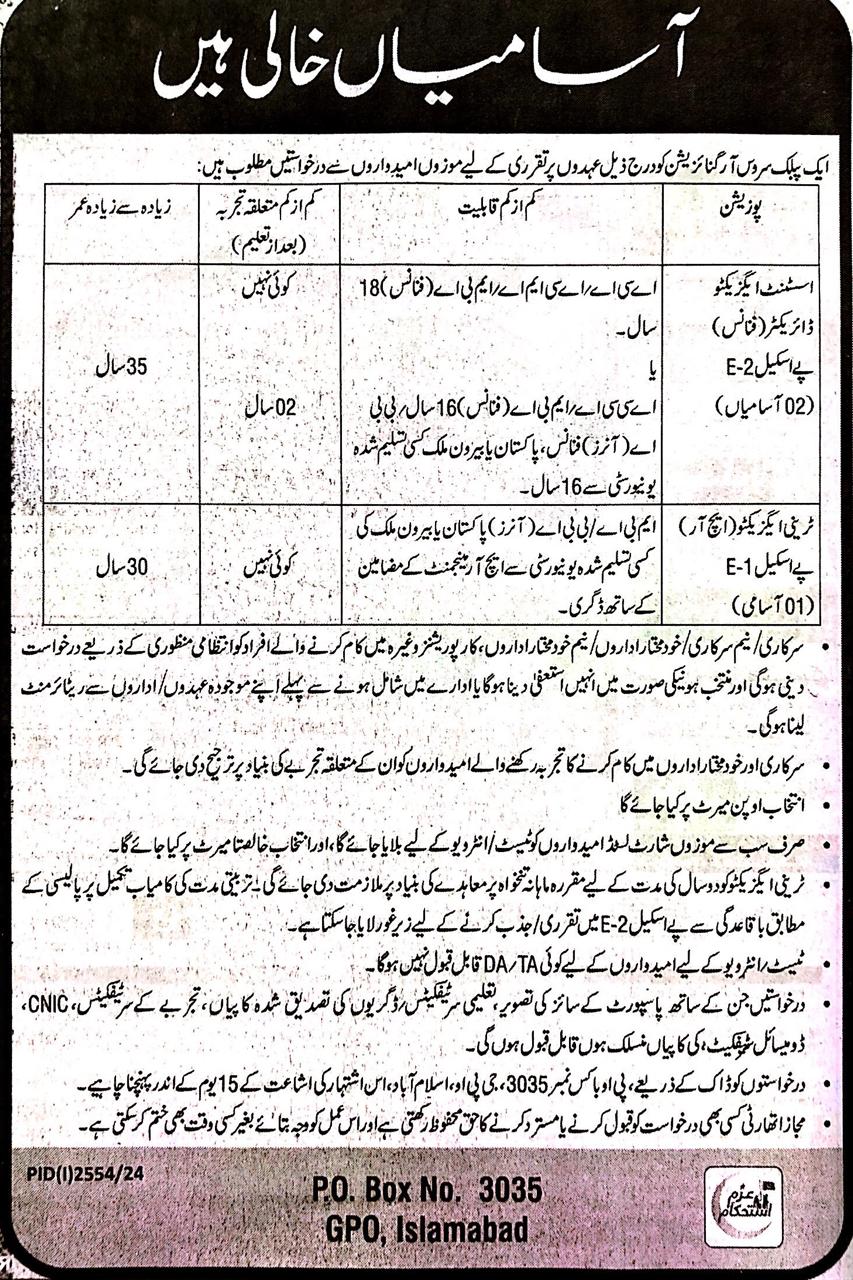 آسامیاں خالی ہیں
ایک پبلک سروس آرگنائزیشن کو درج ذیل عہدوں پر تقرری کے لیے موزوں امیدواروں سے درخواستیں مطلوب ہیں:
پوزیشن
کم از کم قابلیت
کم از کم متعلقہ تجربہ
(بعد از تعلیم)
زیادہ سے زیادہ عمر
اسسٹنٹ ایگزیکٹو
ڈائریکٹر (فنانس)
پے اسکیل E-2
(02 آسامیاں)
اے سی اے/اے سی ایم اے/ایم بی اے (فنانس) 18
سال۔
یا
اے سی سی اے/ایم بی اے (فنانس) 16 سال/بی بی
اے (آنرز) فنانس، پاکستان یا بیرون ملک کسی تسلیم شدہ
یونیورسٹی سے 16 سال۔
کوئی نہیں
02 سال
35 سال
ٹرینی ایگزیکٹو (ایچ آر)
پے اسکیل E-1
(01 آسامی)
ایم بی اے/بی بی اے (آنرز) پاکستان یا بیرون ملک کی
کسی تسلیم شدہ یونیورسٹی سے ایچ آر مینجمنٹ کے مضامین
کے ساتھ ڈگری۔
کوئی نہیں
30 سال
• سرکاری/نیم سرکاری/خودمختار اداروں/نیم خودمختار اداروں، کارپوریشنز وغیرہ میں کام کرنے والے افراد کو انتظامی منظوری کے ذریعے درخواست
دینی ہوگی اور منتخب ہونیکی صورت میں انہیں استعفیٰ دینا ہوگا یا ادارے میں شامل ہونے سے پہلے اپنے موجودہ عہدوں/اداروں سے ریٹائرمنٹ
لینا ہوگی۔
• سرکاری اور خودمختار اداروں میں کام کرنے کا تجربہ رکھنے والے امیدواروں کو ان کے متعلقہ تجربے کی بنیاد پر ترجیح دی جائے گی۔
• انتخاب اوپن میرٹ پر کیا جائے گا
• صرف سب سے موزوں شارٹ لسٹڈ امیدواروں کو ٹیسٹ/انٹرویو کے لیے بلایا جائے گا، اور انتخاب خالصتاً میرٹ پر کیا جائے گا۔
• ٹرینی ایگزیکٹو کو دو سال کی مدت کے لیے مقررہ ماہانہ تنخواہ پر معاہدے کی بنیاد پر ملازمت دی جائے گی۔ تربیتی مدت کی کامیاب تکمیل پر پالیسی کے
مطابق باقاعدگی سے پے اسکیل E-2 میں تقرری/جذب کرنے کے لیے زیر غور لایا جا سکتا ہے۔
• ٹیسٹ/انٹرویو کے لیے امیدواروں کے لیے کوئی DA/TA قابل قبول نہیں ہوگا۔
• درخواستیں جن کے ساتھ پاسپورٹ کے سائز کی تصویر، تعلیمی سرٹیفکیٹس/ڈگریوں کی تصدیق شدہ کاپیاں، تجربے کے سرٹیفکیٹس، CNIC،
ڈومیسائل سرٹیفکیٹ، کی کاپیاں منسلک ہوں قابل قبول ہوں گی۔
• درخواستوں کو ڈاک کے ذریعے، پی او باکس نمبر 3035، جی پی او، اسلام آباد، اس اشتہار کی اشاعت کے 15 یوم کے اندر پہنچنا چاہیے۔
• مجاز اتھارٹی کسی بھی درخواست کو قبول کرنے یا مسترد کرنے کا حق محفوظ رکھتی ہے اور اس عمل کو وجہ بتائے بغیر کسی وقت بھی ختم کر سکتی ہے۔
PID(I)2554/24
P.O. Box No. 3035
GPO, Islamabad
عزم
استحکام